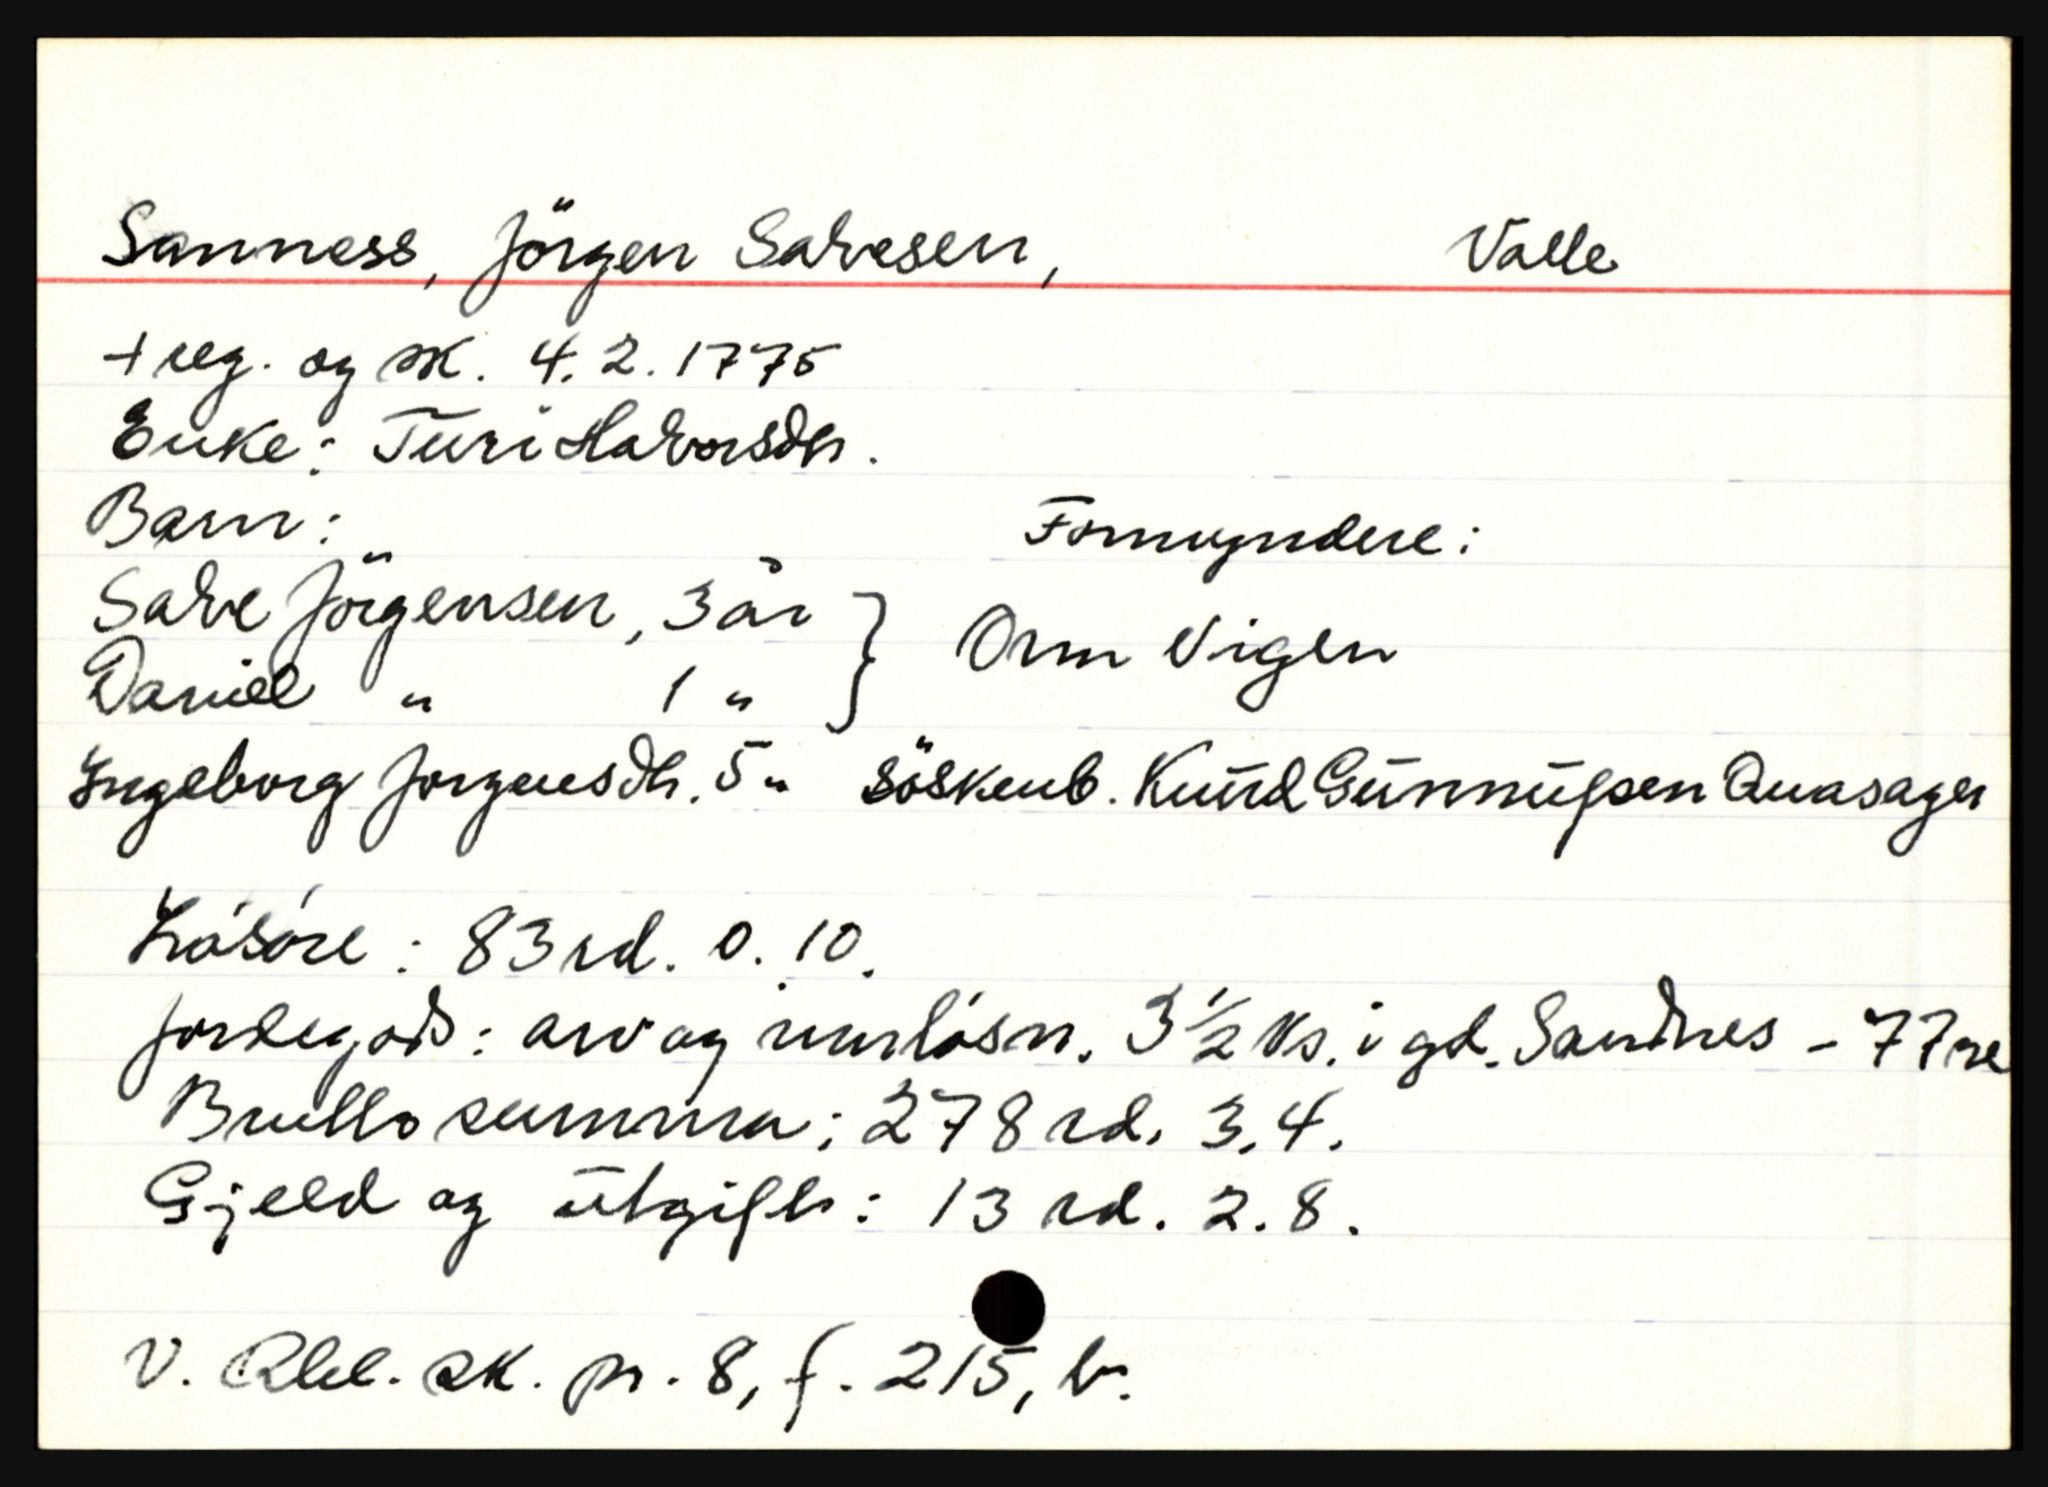 Sanness, Jörgen Salvesen, Valle
+ reg. og sk. 4.2.1775
Enke: Turi Halvorsdtr.
Barn: Formyndere:
Salve Jörgensen, 3 år } Orm Vigen
Daniel " 1 "
Ingeborg Jorgensdtr. 5 " söskenb. Knud Gunnufsen Quasager
Lösöre: 83 rd. 0. 10.
Jordegods: arv og innlösn. 3 1/2 ks. i gd. Sandnes - 77 rd
Brutto summa: 278 rd. 3. 4.
Gjeld og utgift: 13 rd. 2. 8.
V. Rbl. sk. pr. 8, f. 215, b.